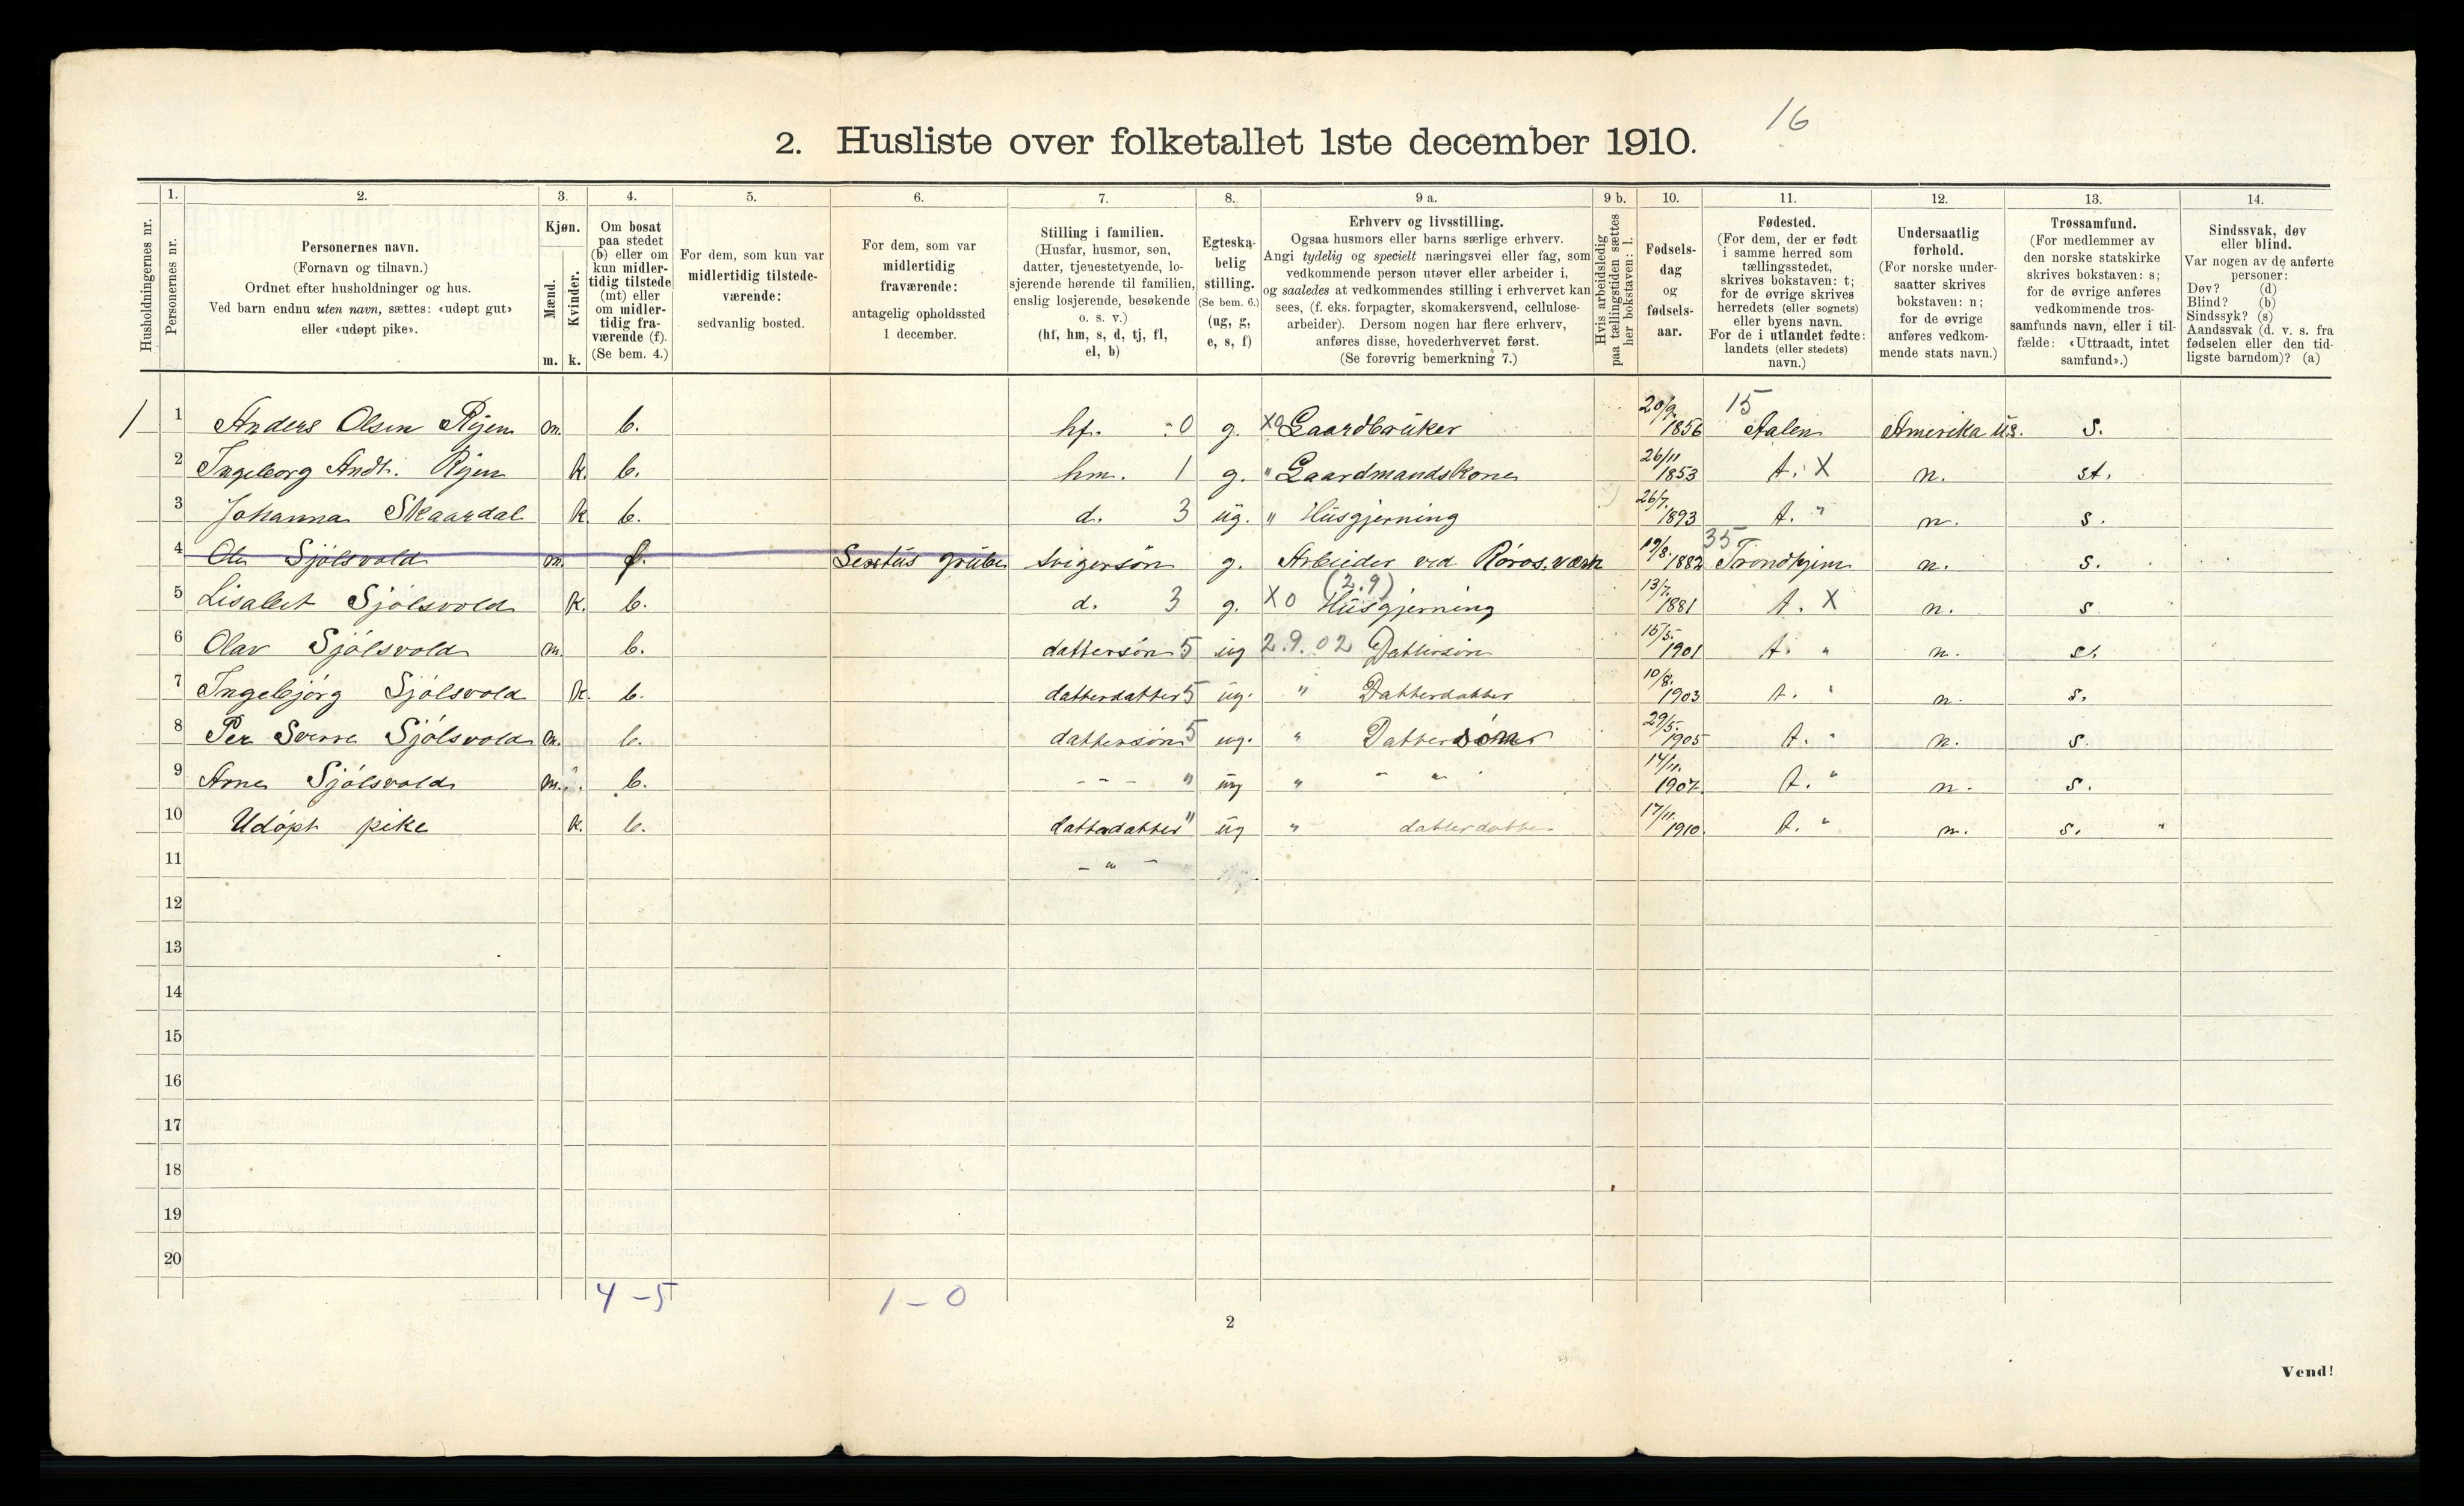 16
2. Husliste over folketallet 1ste december 1910.
Husholdningernes nr.
1. Personernes nr.
2. Personernes navn.
(Fornavn og tilnavn.)
Ordnet efter husholdninger og hus.
Ved barn endnu uten navn, sættes: «udøpt gut»
eller «udøpt pike».
3. Kjøn.
Mænd. m.
Kvinder. k.
4. Om bosat
paa stedet
(b) eller om
kun midler-
tidig tilstede
(mt) eller
om midler-
tidig fra-
værende (f).
(Se bem. 4.)
5. For dem, som kun var
midlertidig tilstede-
værende:
sedvanlig bosted.
6. For dem, som var
midlertidig
fraværende:
antagelig opholdssted
1 december.
7. Stilling i familien.
(Husfar, husmor, søn,
datter, tjenestetyende, lo-
sjerende hørende til familien,
enslig losjerende, besøkende
o. s. v.)
(hf, hm, s, d, tj, fl,
el, b)
8. Egteska-
belig
stilling.
(Se bem. 6.)
(ug, g,
e, s, f)
9 a. Erhverv og livsstilling.
Ogsaa husmors eller barns særlige erhverv.
Angi tydelig og specielt næringsvei eller fag, som
vedkommende person utøver eller arbeider i,
og saaledes at vedkommendes stilling i erhvervet kan
sees, (f. eks. forpagter, skomakersvend, cellulose-
arbeider). Dersom nogen har flere erhverv,
anføres disse, hovederhvervet først.
(Se forøvrig bemerkning 7.)
9 b. Hvis arbeidsledig
paa tællingstiden sættes
her bokstaven: l.
10. Fødsels-
dag
og
fødsels-
aar.
11. Fødested.
(For dem, der er født
i samme herred som
tællingsstedet,
skrives bokstaven: t;
for de øvrige skrives
herredets (eller sognets)
eller byens navn.
For de i utlandet fødte:
landets (eller stedets)
navn.)
12. Undersaatlig
forhold.
(For norske under-
saatter skrives
bokstaven: n;
for de øvrige
anføres vedkom-
mende stats navn.)
13. Trossamfund.
(For medlemmer av
den norske statskirke
skrives bokstaven: s;
for de øvrige anføres
vedkommende tros-
samfunds navn, eller i til-
fælde: «Uttraadt, intet
samfund».)
14. Sindssvak, døv
eller blind.
Var nogen av de anførte
personer:
Døv? (d)
Blind? (b)
Sindssyk? (s)
Aandssvak (d. v. s. fra
fødselen eller den tid-
ligste barndom)? (a)
1 1 Anders Olsen Ryen m. b. hf. 0 g. X0 Gaardbrüker 20/9. 1856 15 Aalen Amerika U.S. s.
2 Ingeborg Andt. Ryen k. b. hm. 1 g. " Gaardmandskone 26/11 1853 t. X n. st.
3 Johanna Skaardal k. b. d. 3 üg. " Hüsgjerning 26/7. 1893 t. " n. s.
4 Ole Sjölsvold m. f. Sextüs grübe svigersön g. Arbeider ved Röros. værk 19/8. 1882 35 Trondhjem n. s.
5 Lisabet Sjölsvold k. b. d. 3 g. X0 (2.9) Hüsgjerning 13/7. 1881 t. X n. s
6 Olav Sjölsvold m. b. dattersön 5 üg 2.9.02 Dattersön 15/5. 1901 t. " n. s.
7 Ingebjörg Sjölsvold k. b. datterdatter 5 üg. " Datterdatter 10/8. 1903 t. " n. s.
8 Per Sverre Sjölsvold m. b. dattersön 5 ug. " Dattersön 29/5. 1905 t. " n. s.
9 Arne Sjölsvold m. b. - - - " üg " " " 14/11. 1907. t. " n. s.
10 Udöpt pike k. b. datterdatter " üg " datterdatter 17/11. 1910. t. " n. s. "
11 - " -
12
13
14
15
16
17
18
19
20
4 – 5 1 – 0
2
Vend!